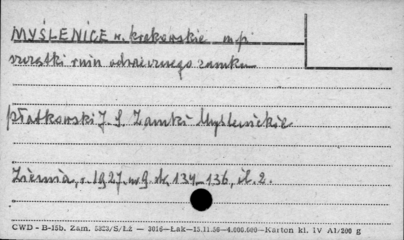 MYŚLENICE w. krakowskie m. p.
szczątki ruin odwiecznego zamku
Płatkowski J. S. Zamki Myślenickie
Ziemia, r. 1927, nr 9 str. 134-136, il. 2.
CWD - B-15b. Zam. 5823/S/Łż — 3016—Łak—15.11.56—4.000.000—Karton kl. IV A1/200 g